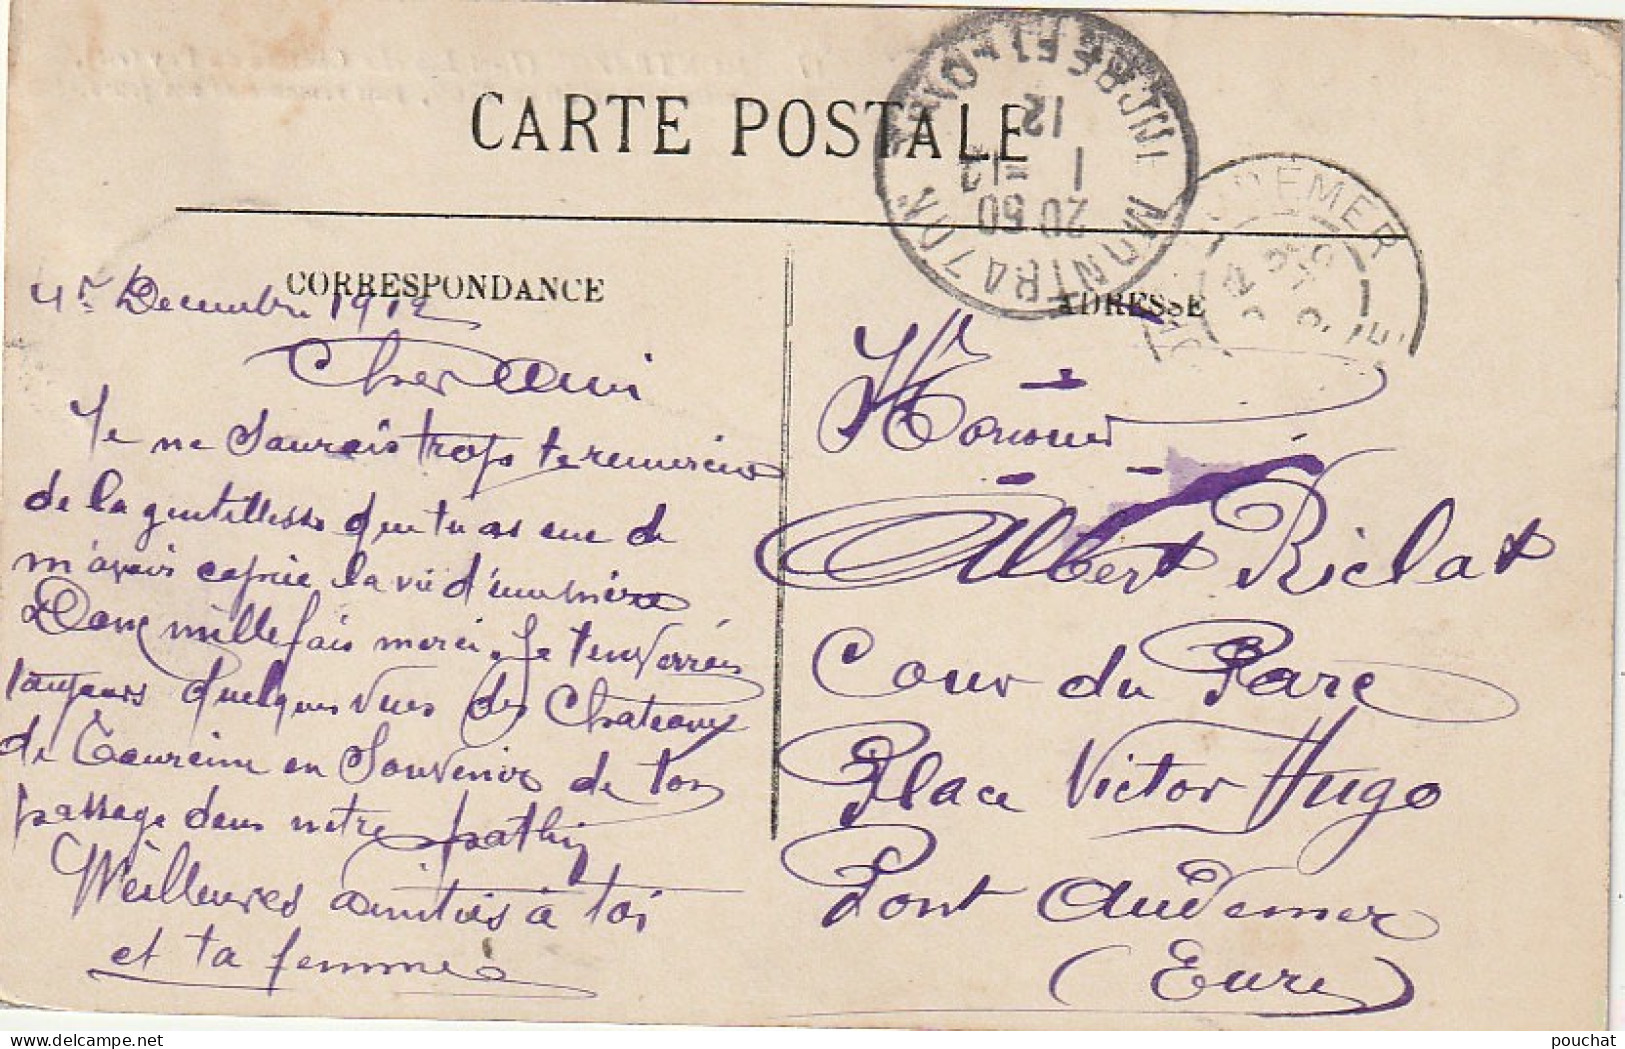 CARTE POSTALE
MONTBAZON
INDRE ET LOIRE
20 50
1 - 12
12
AUDEMER
CORRESPONDANCE
ADRESSE
4r Decembre 1912
Cher Ami
Je ne Saurais trop te remercier
de la gentillesse que tu as eue de
m'avoir copiée la vie d'une mère
Donc mille fois merci. Je t'enverrais
toujours quelques vues des Chateaux
de Touraine en Souvenir de ton
passage dans notre pathy
Meilleures amitiés à toi
et ta femme
Monsieur
Albert Riclat
Cour du Parc
Place Victor Hugo
Pont Audemer
(Eure)
pouchat